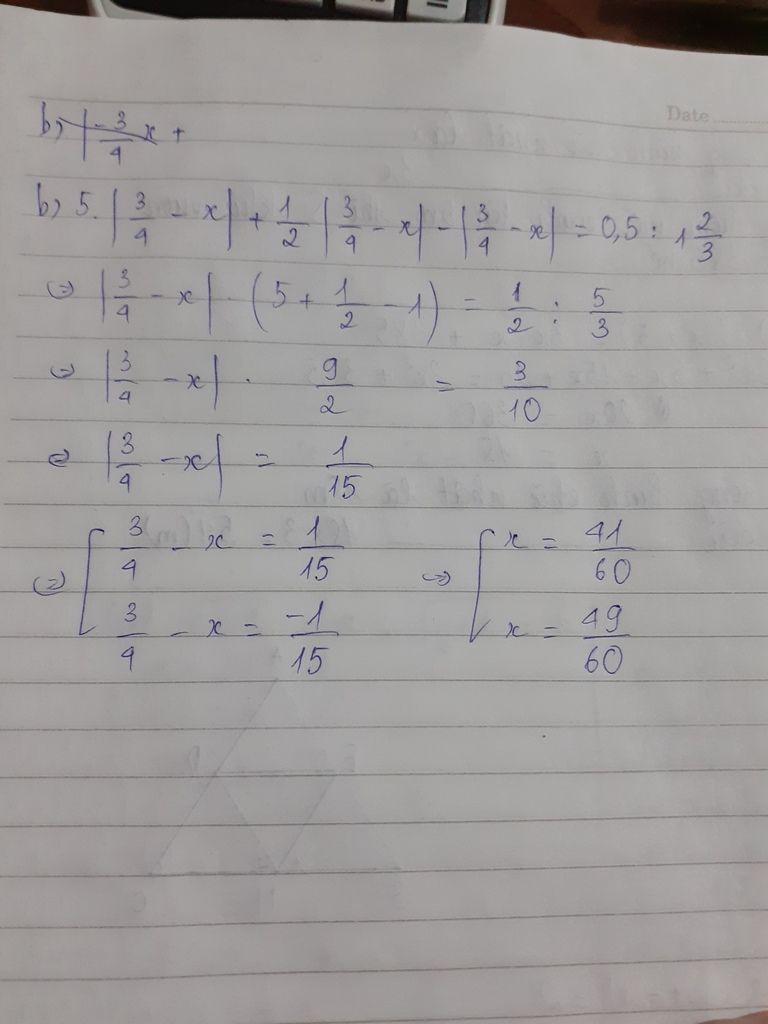 Date
b, |-3/4 x +
b) 5.|3/4 - x| + 1/2 |3/4 - x| - |3/4 - x| = 0,5 : 1 2/3
(=) |3/4 - x| . (5 + 1/2 - 1) = 1/2 : 5/3
(=) |3/4 - x| . 9/2 = 3/10
(=) |3/4 - x| = 1/15
(=) [ 3/4 - x = 1/15 (=) [ x = 41/60
3/4 - x = -1/15 x = 49/60